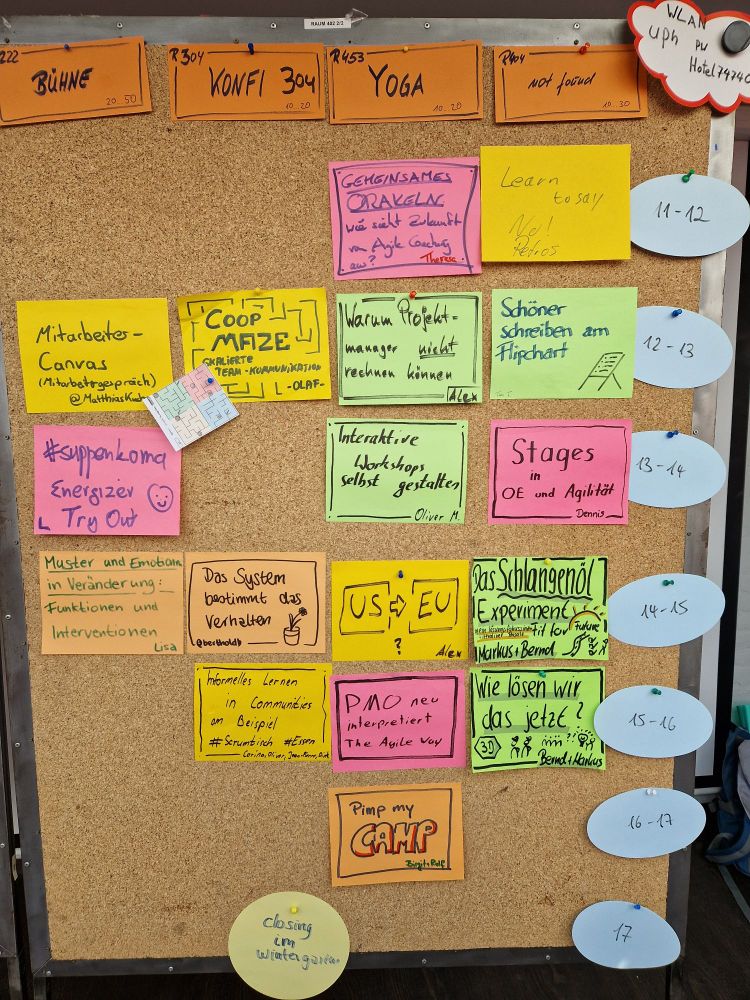 RAUM 402 2/2
WLAN
uph pw
Hotel7474
222
BÜHNE
20..50
R304
KONFI 304
10..20
R453
YOGA
10..20
R404
not found
10..30
GEMEINSAMES
ORAKELN
wie sieht Zukunft
von Agile Coaching
aus?
Theresa
Learn
to say
No!
Petros
11-12
Mitarbeiter-
Canvas
(Mitarbeitergespräch)
COOP
MAZE
SKALIERTE
TEAM-KOMMUNIKATION
-OLAF-
Warum Projekt-
manager nicht
rechnen können
Alex
Schöner
schreiben am
Flipchart
12-13
#suppenkoma
Energizer
Try Out
Interaktive
Workshops
selbst gestalten
Oliver M.
Stages
in
OE und Agilität
Dennis
13-14
Muster und Emotionen
in Veränderung:
Funktionen und
Interventionen
Lisa
Das System
bestimmt das
Verhalten
@bertholdb
US ⇨ EU
?
Alex
Das Schlangenöl
Experiment
Fit for Future
Markus+Bernd
14-15
Informelles Lernen
in Communities
am Beispiel
#Scrumtisch #Essen
Corinna, Oliver,
PMO neu
interpretiert
The Agile Way
Wie lösen wir
das jetzt?
30
Bernd+Markus
15-16
Pimp my
CAMP
Birgit+Ralf
16-17
closing
im
Wintergarten
17